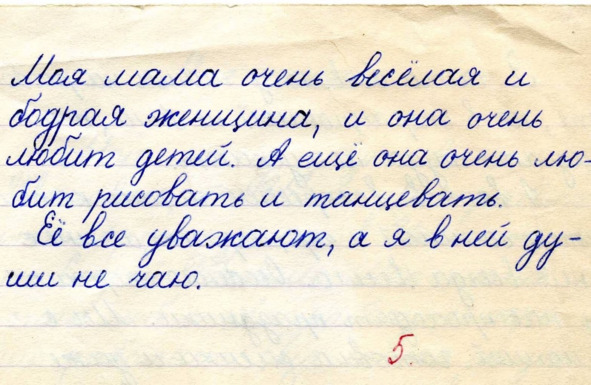 Моя мама очень весёлая и
бодрая женщина, и она очень
любит детей. А ещё она очень лю-
бит рисовать и танцевать.
Её все уважают, а я в ней ду-
ши не чаю.
5.